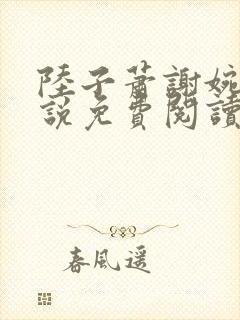 陸子蕭謝婉
説免費閱讀
春風遥